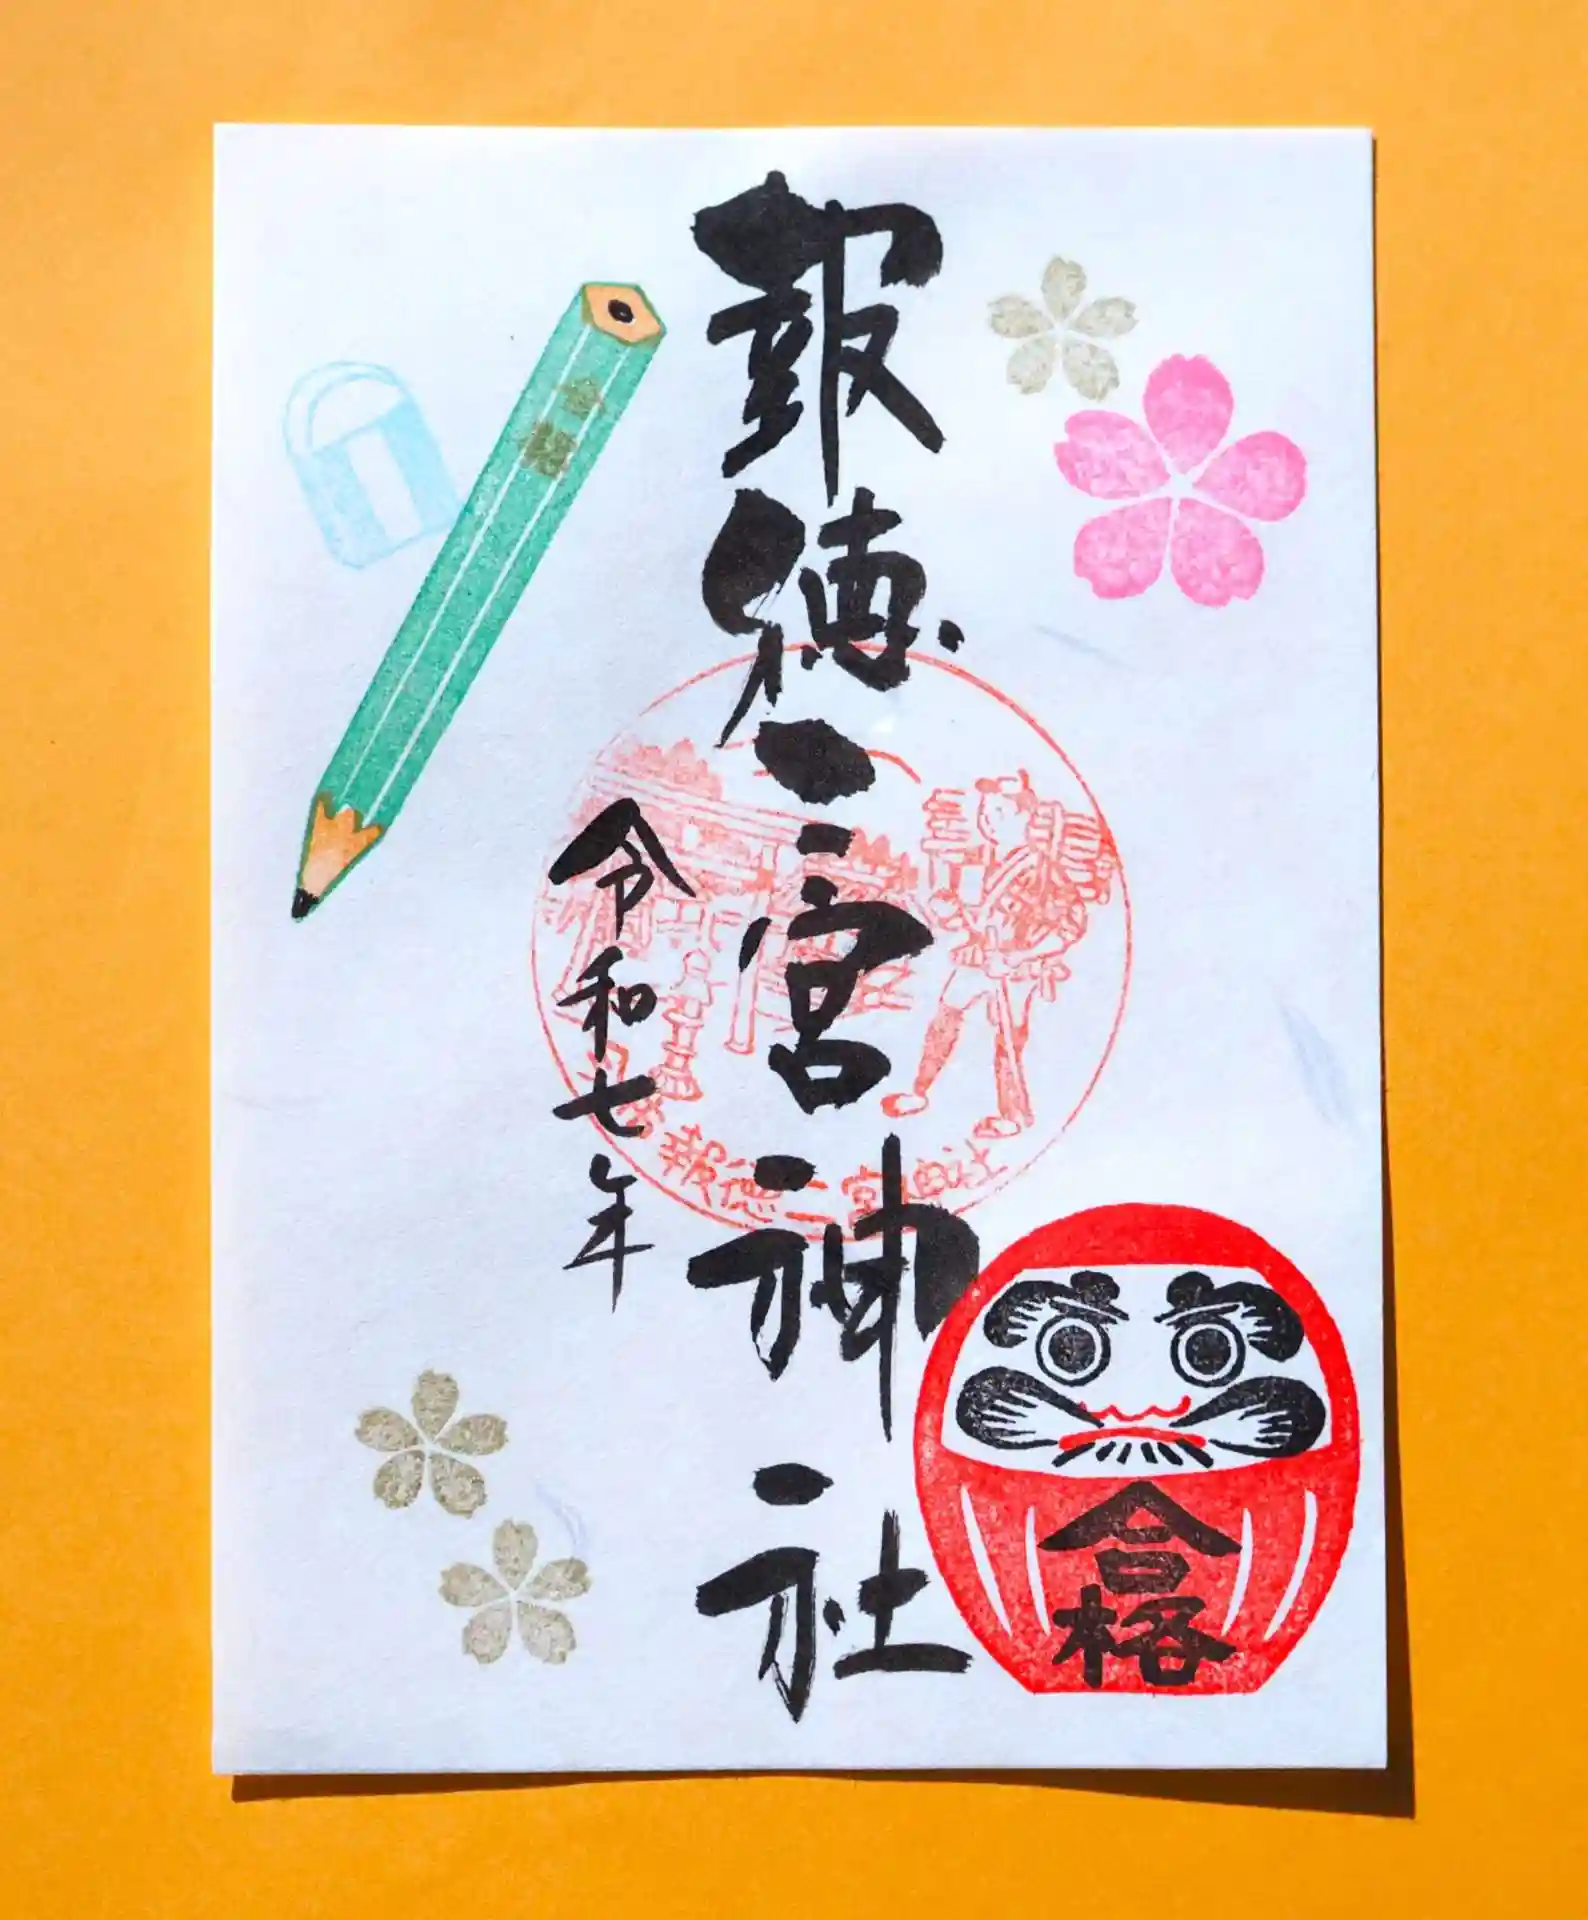 報徳二宮神社
令和七年
報徳二宮神社
合格
合格